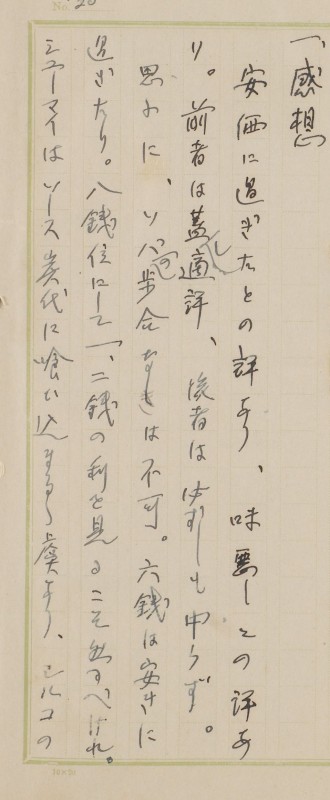 一、感想
安価に過ぎたとの評あり、味悪しとの評あ
り。前者は蓋し適評、後者は必ずしも中らず。
思ふに、ソバの歩合なきは不可。六銭は安きに
過ぎたり。八銭位にして一、二銭の利を見るこそ然るべけれ。
シューマイはソース炭代に喰い込まるる虞あり、シルコの